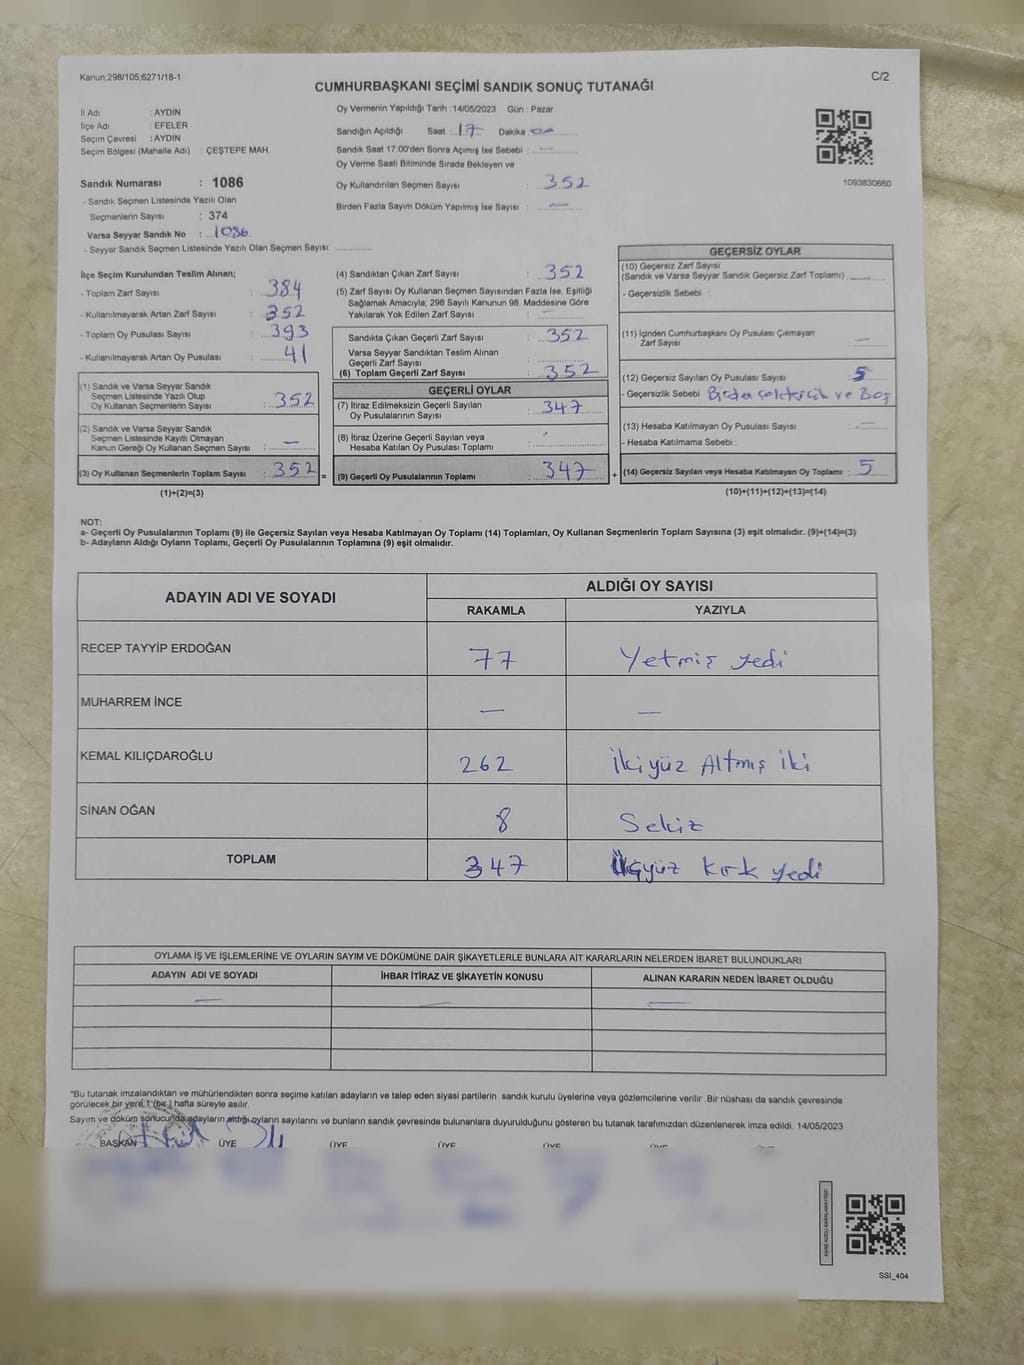 Kanun;298/105;6271/18-1
C/2
CUMHURBAŞKANI SEÇİMİ SANDIK SONUÇ TUTANAĞI
İl Adı : AYDIN
İlçe Adı : EFELER
Seçim Çevresi : AYDIN
Seçim Bölgesi (Mahalle Adı) : ÇEŞTEPE MAH.
Sandık Numarası : 1086
- Sandık Seçmen Listesinde Yazılı Olan
Seçmenlerin Sayısı : 374
Varsa Seyyar Sandık No : 1086
- Seyyar Sandık Seçmen Listesinde Yazılı Olan Seçmen Sayısı:
Oy Vermenin Yapıldığı Tarih : 14/05/2023 Gün : Pazar
Sandığın Açıldığı Saat : 17 Dakika :
Sandık Saat 17:00'den Sonra Açımış İse Sebebi : —
Oy Verme Saati Bitiminde Sırada Bekleyen ve
Oy Kullandırılan Seçmen Sayısı : 352
Birden Fazla Sayım Döküm Yapılmış İse Sayısı : —
1093830660
İlçe Seçim Kurulundan Teslim Alınan;
- Toplam Zarf Sayısı : 384
- Kullanılmayarak Artan Zarf Sayısı : 352
- Toplam Oy Pusulası Sayısı : 393
- Kullanılmayarak Artan Oy Pusulası : 41
(1) Sandık ve Varsa Seyyar Sandık
Seçmen Listesinde Yazılı Olup
Oy Kullanan Seçmenlerin Sayısı : 352
(2) Sandık ve Varsa Seyyar Sandık
Seçmen Listesinde Kayıtlı Olmayan
Kanun Gereği Oy Kullanan Seçmen Sayısı : —
(3) Oy Kullanan Seçmenlerin Toplam Sayısı : 352 =
(1)+(2)=(3)
(4) Sandıktan Çıkan Zarf Sayısı : 352
(5) Zarf Sayısı Oy Kullanan Seçmen Sayısından Fazla İse, Eşitliği
Sağlamak Amacıyla; 298 Sayılı Kanunun 98. Maddesine Göre
Yakılarak Yok Edilen Zarf Sayısı : —
Sandıkta Çıkan Geçerli Zarf Sayısı : 352
Varsa Seyyar Sandıktan Teslim Alınan
Geçerli Zarf Sayısı :
(6) Toplam Geçerli Zarf Sayısı : 352
GEÇERLİ OYLAR
(7) İtiraz Edilmeksizin Geçerli Sayılan
Oy Pusulalarının Sayısı : 347
(8) İtiraz Üzerine Geçerli Sayılan veya
Hesaba Katılan Oy Pusulası Toplamı :
(9) Geçerli Oy Pusulalarının Toplamı : 347 +
GEÇERSİZ OYLAR
(10) Geçersiz Zarf Sayısı
(Sandık ve Varsa Seyyar Sandık Geçersiz Zarf Toplamı) : —
- Geçersizlik Sebebi :
(11) İçinden Cumhurbaşkanı Oy Pusulası Çıkmayan
Zarf Sayısı : —
(12) Geçersiz Sayılan Oy Pusulası Sayısı : 5
- Geçersizlik Sebebi ve Boş
(13) Hesaba Katılmayan Oy Pusulası Sayısı : —
- Hesaba Katılmama Sebebi :
(14) Geçersiz Sayılan veya Hesaba Katılmayan Oy Toplamı : 5
(10)+(11)+(12)+(13)=(14)
NOT:
a- Geçerli Oy Pusulalarının Toplamı (9) ile Geçersiz Sayılan veya Hesaba Katılmayan Oy Toplamı (14) Toplamları, Oy Kullanan Seçmenlerin Toplam Sayısına (3) eşit olmalıdır. (9)+(14)=(3)
b- Adayların Aldığı Oyların Toplamı, Geçerli Oy Pusulalarının Toplamına (9) eşit olmalıdır.
ADAYIN ADI VE SOYADI
ALDIĞI OY SAYISI
RAKAMLA YAZIYLA
RECEP TAYYİP ERDOĞAN 77 Yetmiş yedi
MUHARREM İNCE — —
KEMAL KILIÇDAROĞLU 262 İkiyüz Altmış iki
SİNAN OĞAN 8 Sekiz
TOPLAM 347 Üçyüz kırk yedi
OYLAMA İŞ VE İŞLEMLERİNE VE OYLARIN SAYIM VE DÖKÜMÜNE DAİR ŞİKAYETLERLE BUNLARA AİT KARARLARIN NELERDEN İBARET BULUNDUKLARI
ADAYIN ADI VE SOYADI İHBAR İTİRAZ VE ŞİKAYETİN KONUSU ALINAN KARARIN NEDEN İBARET OLDUĞU
— — —
"Bu tutanak imzalandıktan ve mühürlendikten sonra seçime katılan adayların ve talep eden siyasi partilerin sandık kurulu üyelerine veya gözlemcilerine verilir .Bir nüshası da sandık çevresinde
görülecek bir yere 1 (bir ) hafta süreyle asılır.
Sayım ve döküm sonucunda adayların aldığı oyların sayılarını ve bunların sandık çevresinde bulunanlara duyurulduğunu gösteren bu tutanak tarafımızdan düzenlenerek imza edildi. 14/05/2023
BAŞKAN ÜYE ÜYE ÜYE ÜYE ÜYE
SSI_404